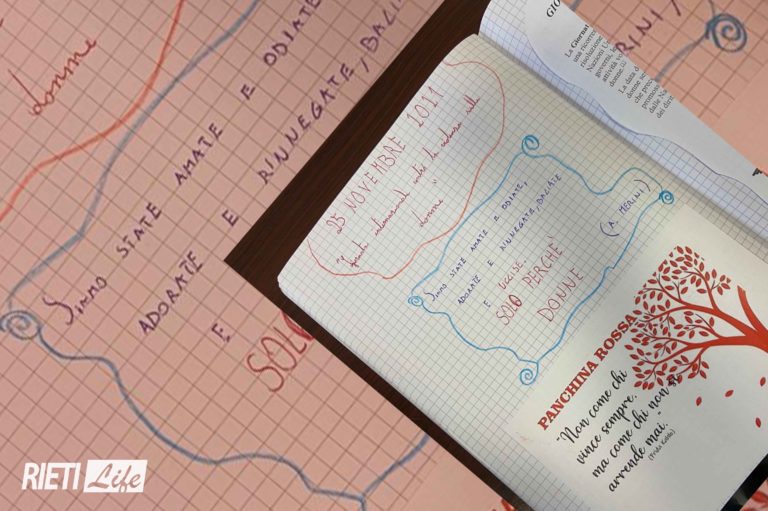 donne
Siamo STATE AMATE E ODIATE
ADORATE E RINNEGATE, BACIA
E
SOLO
RINI)
25 NOVEMBRE 2021
"Giornata internazional contro la violenza sulle
donne"
Siamo STATE AMATE E ODIATE,
ADORATE E RINNEGATE, BACIATE
E UCCISE.
SOLO PERCHÈ
DONNE
(A. MERINI)
GIO
La Giornat
una ricorre
risoluzione
Nazioni Un
governi, le
attività vo
donne.[2]
La data d
donne se
che prec
promoss
dalle Na
dei dirit
PANCHINA ROSSA
"Non come chi
vince sempre.
ma come chi non si
arrende mai."
(Frida Kahlo)
RIETI Life